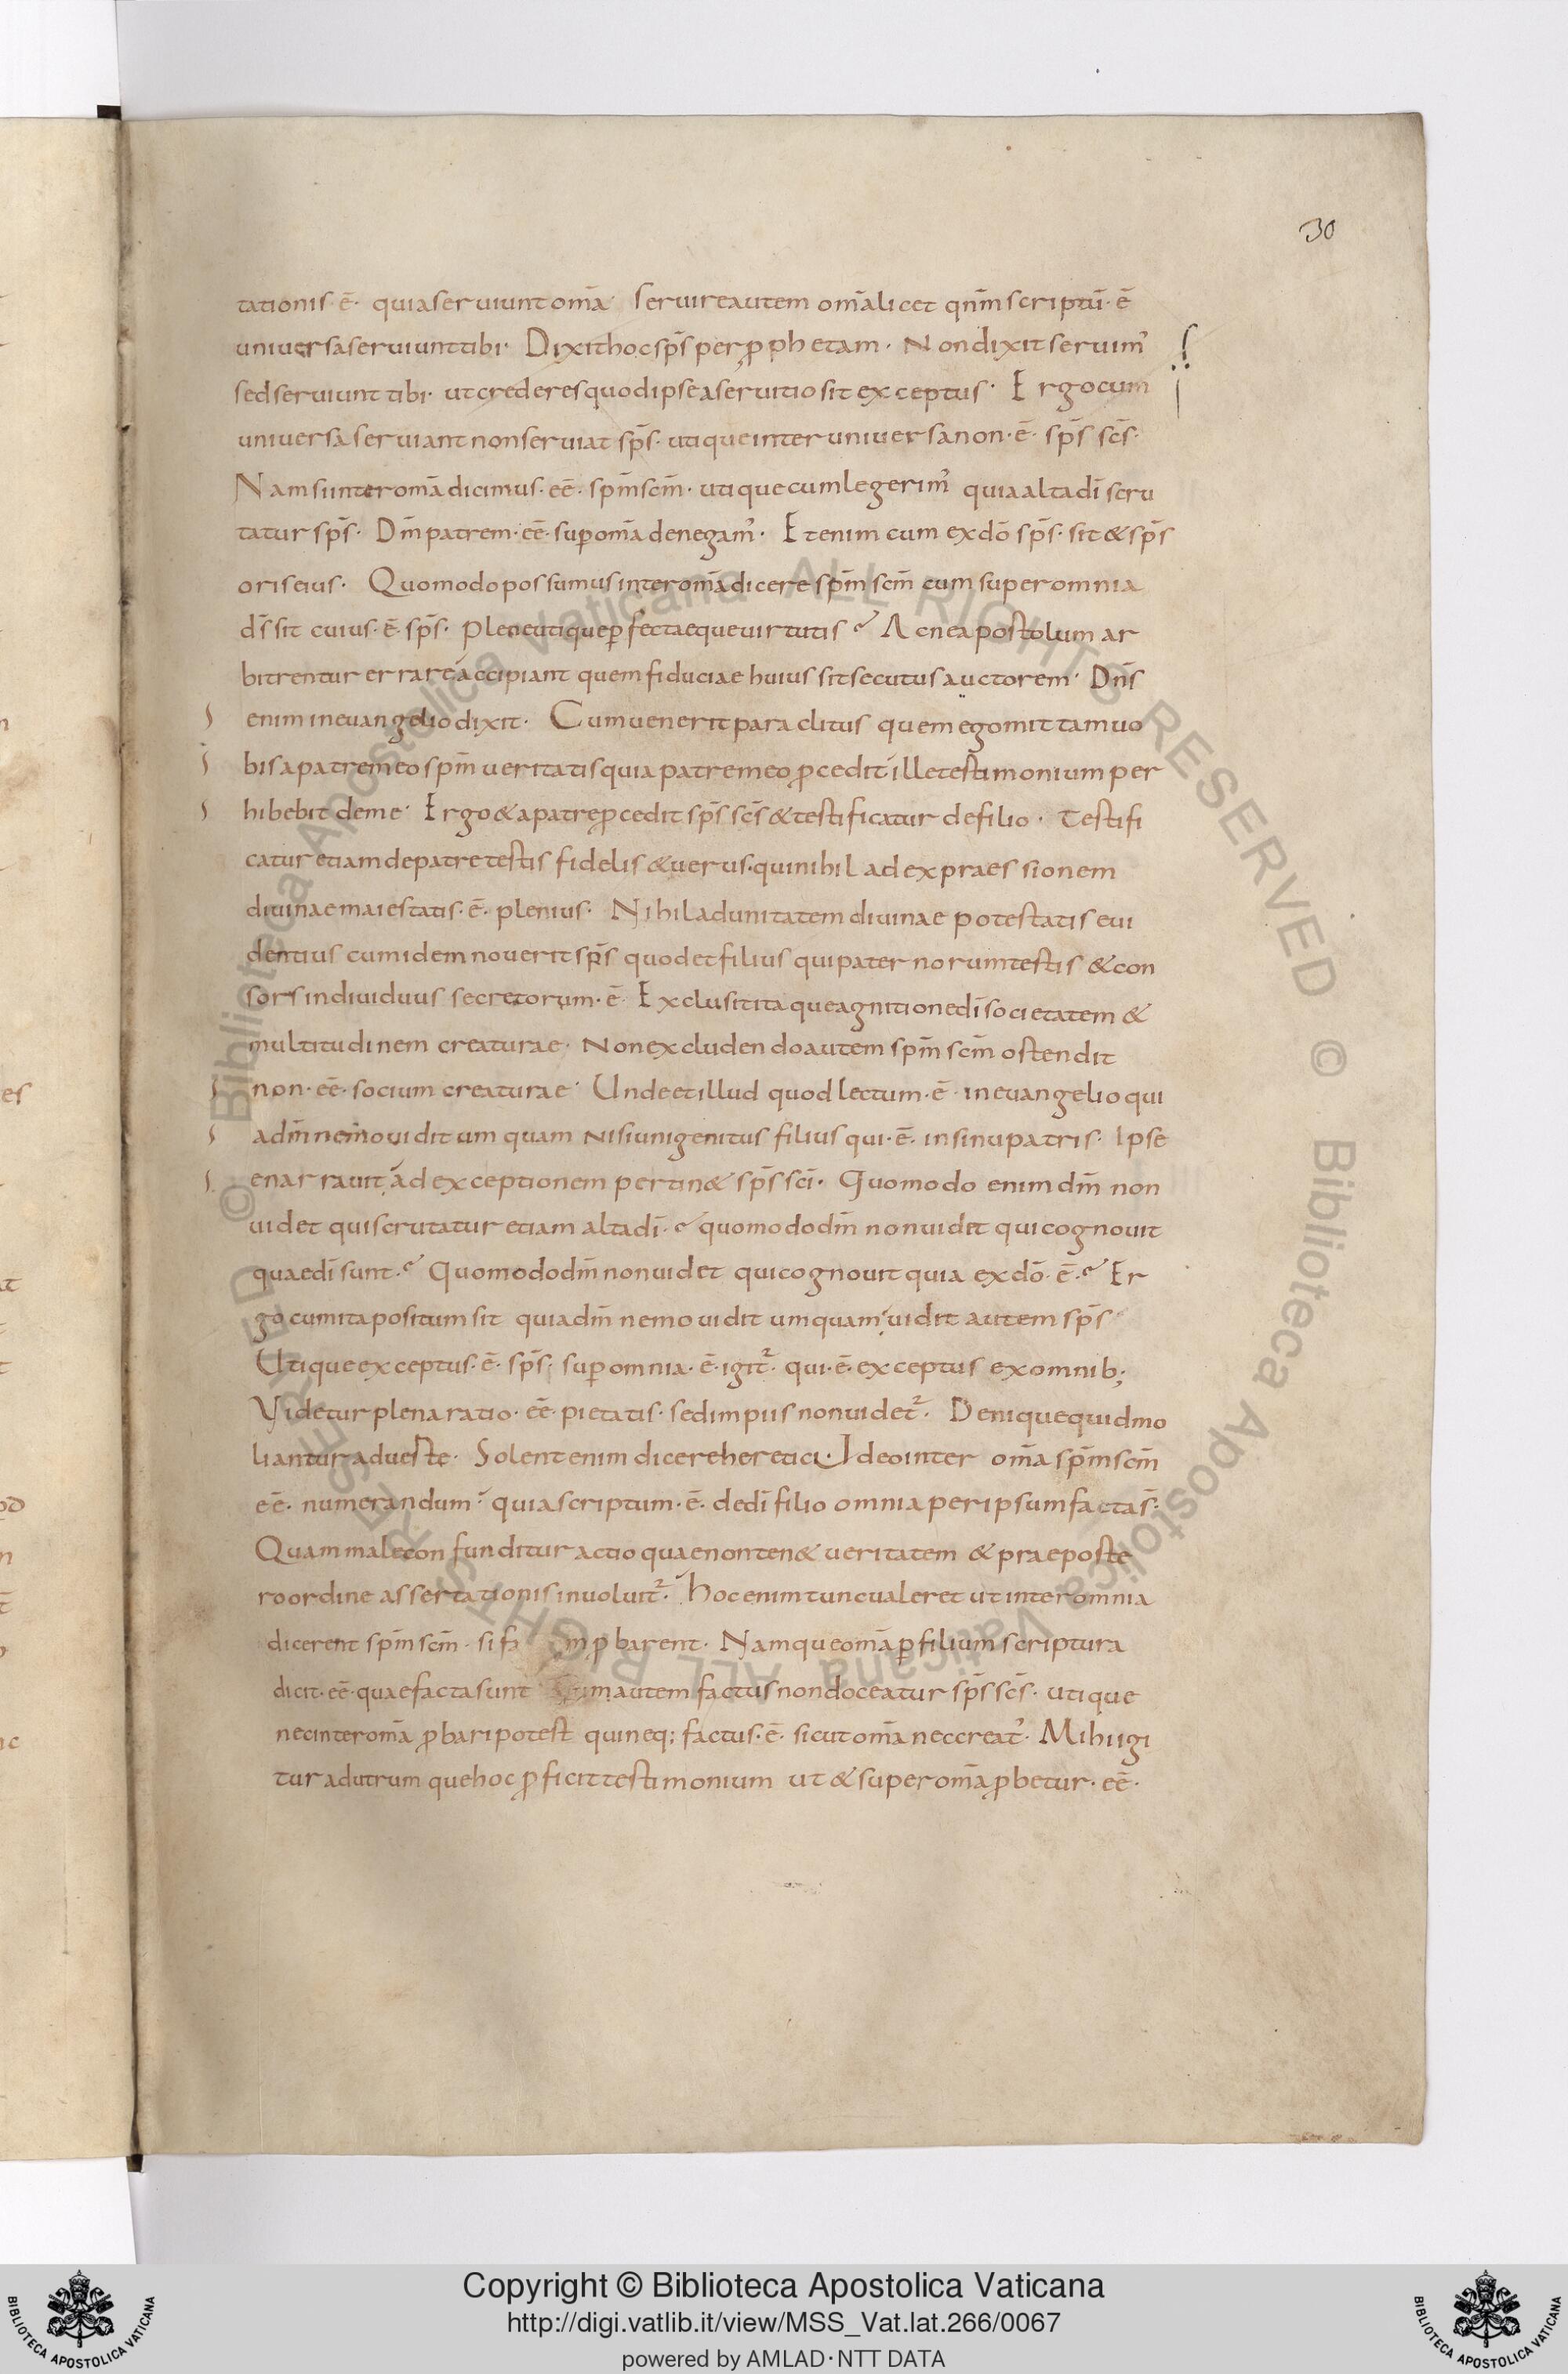 30
tationis·ē· quia seruiunt om̄a Seruire autem om̄a licet qn̄m scriptū·ē
uniuersa seruiunt tibi· Dixit hoc sp̄s per p̱phetam· Non dixit seruim᾽
sed seruiunt tibi· ut crederes quod ipse a seruitio sit exceptus· Ergo cum
uniuersa seruiant non seruiat sp̄s· utique inter uniuersa non·ē· sp̄s sc̄s·
Nam si inter om̄a dicimus·eē·sp̄m sc̄m· utique cum legerim᾽ quia alta dī scru
tatur sp̄s· Dm̄ patrem·eē·sup̱ om̄a denegam᾽· Etenim cum ex dō sp̄s·sit & sp̄s
oris eius· Quomodo possumus inter om̄a dicere sp̄m sc̄m cum super omnia
ds̄ sit cuius·ē·sp̄s· plene utique p̱fectaeque uirtutis? Ac ne apostolum ar
bitrentur errare accipiant quem fiduciae huius sit secutus auctorem· Dn̄s
enim in euangelio dixit· Cum uenerit paraclitus quem ego mittam uo
bis a patre meo sp̄m ueritatis qui a patre meo p̱cedit ille testimonium per
hibebit de me· Ergo & a patre p̱cedit sp̄s sc̄s & testificatur de filio· Testifi
catur etiam de patre testis fidelis & uerus·qui nihil ad expraessionem
diuinae maiestatis·ē·plenius· Nihil ad unitatem diuinae potestatis eui
dentius cum idem nouerit sp̄s quod et filius qui paternorum testis & con
sors indiuiduus secretorum·ē· Exclusit itaque agnitione dī societatem &
multitudinem creaturae· Non excludendo autem sp̄m sc̄m ostendit
non·eē·socium creaturae· Unde et illud quod lectum·ē·in euangelio qui
a dm̄ nemo uidit umquam nisi unigenitus filius qui·ē·in sinu patris· Ipse
enarrauit, ad exceptionem pertin& sp̄s scī· Quomodo enim dm̄ non
uidet qui scrutatur etiam alta dī·? quomodo dm̄ non uidet qui cognouit
quae dī sunt·? Quomodo dm̄ non uidet qui cognouit quia ex dō·ē·? Er
go cum ita positum sit quia dm̄ nemo uidit umquam, uidit autem sp̄s
Utique exceptus·ē·sp̄s· sup̱ omnia·ē·igit᾽· qui·ē·exceptus ex omnib;
Videtur plena ratio·eē·pietatis·sed impiis non uidet᾽· Denique quid mo
liantur aduerte· Solent enim dicere heretici· Ideo inter om̄a sp̄m sc̄m
eē·numerandum· quia scriptum·ē·de dī filio omnia per ipsum facta s̄·
Quam male confunditur actio quae non ten& ueritatem & praeposte
ro ordine assertationis inuoluit᾽· hoc enim tunc ualeret ut inter omnia
dicerent sp̄m sc̄m·si m p̱barent· Namque om̄a p̱ filium scriptura
dicit·eē·quae facta sunt autem factus non doceatur sp̄s sc̄s· utique
nec inter om̄a p̱bari potest qui neq; factus·ē·sicut om̄a nec creat᾽· Mihi igi
tur ad utrumque hoc p̱ficit testimonium ut & super om̄a p̱betur·eē·
© Biblioteca Apostolica Vaticana ALL RIGHTS RESERVED © Biblioteca Apostolica Vaticana ALL RIGHTS RESERVED
Copyright © Biblioteca Apostolica Vaticana
http://digi.vatlib.it/view/MSS_Vat.lat.266/0067
powered by AMLAD·NTT DATA
BIBLIOTECA APOSTOLICA VATICANA
BIBLIOTECA APOSTOLICA VATICANA